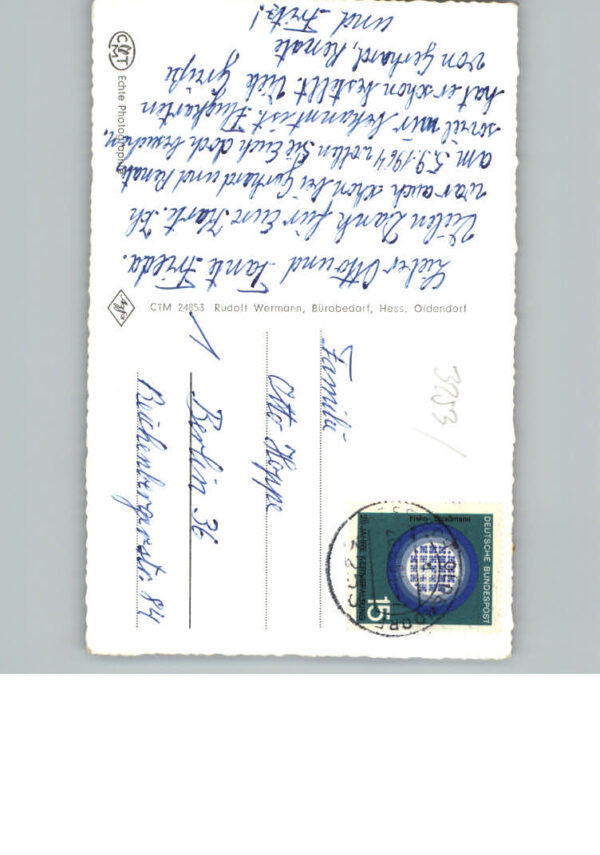 Lieber Otto und Tante Frieda.
Vielen Dank für Eure Karte. Ich
war auch schon bei Gerhard und Renate
am 5.9.1964 wollen Sie Euch doch besuchen,
soviel mir bekannt ist. Flugkarten
hat er schon bestellt. Viele Grüße
von Gerhard, Renate
und Fritz!
CMT
Echte Photographie
Agfa
CTM 24853 Rudolf Wermann, Bürobedarf, Hess. Oldendorf
Familie
Otto Hoppe
1 Berlin 36
Reichenbergerstr. 84
3253
DEUTSCHE BUNDESPOST
15